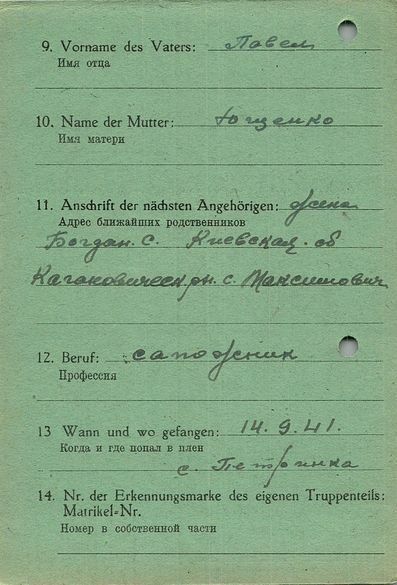 9. Vorname des Vaters: Павел
Имя отца
10. Name der Mutter: Ющенко
Имя матери
11. Anschrift der nächsten Angehörigen: жена
Адрес ближайших родственников
Богдан. С. Киевская. об
Кагановическ рн. с. Максимович
12. Beruf: сапожник
Профессия
13 Wann und wo gefangen: 14. 9. 41.
Когда и где попал в плен
с. Петринка
14. Nr. der Erkennungsmarke des eigenen Truppenteils:
Matrikel=Nr.
Номер в собственной части